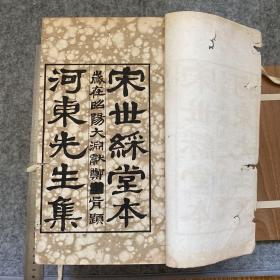 宋世綵堂本
河東先生集
歲在昭陽大淵獻鄭
肯題